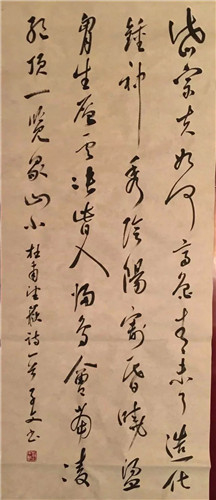 岱宗夫如何齊魯青未了造化
鍾神秀陰陽割昏曉盪
胸生層雲決眥入歸鳥會當凌
絕頂一覽衆山小 杜甫望嶽詩一首 書